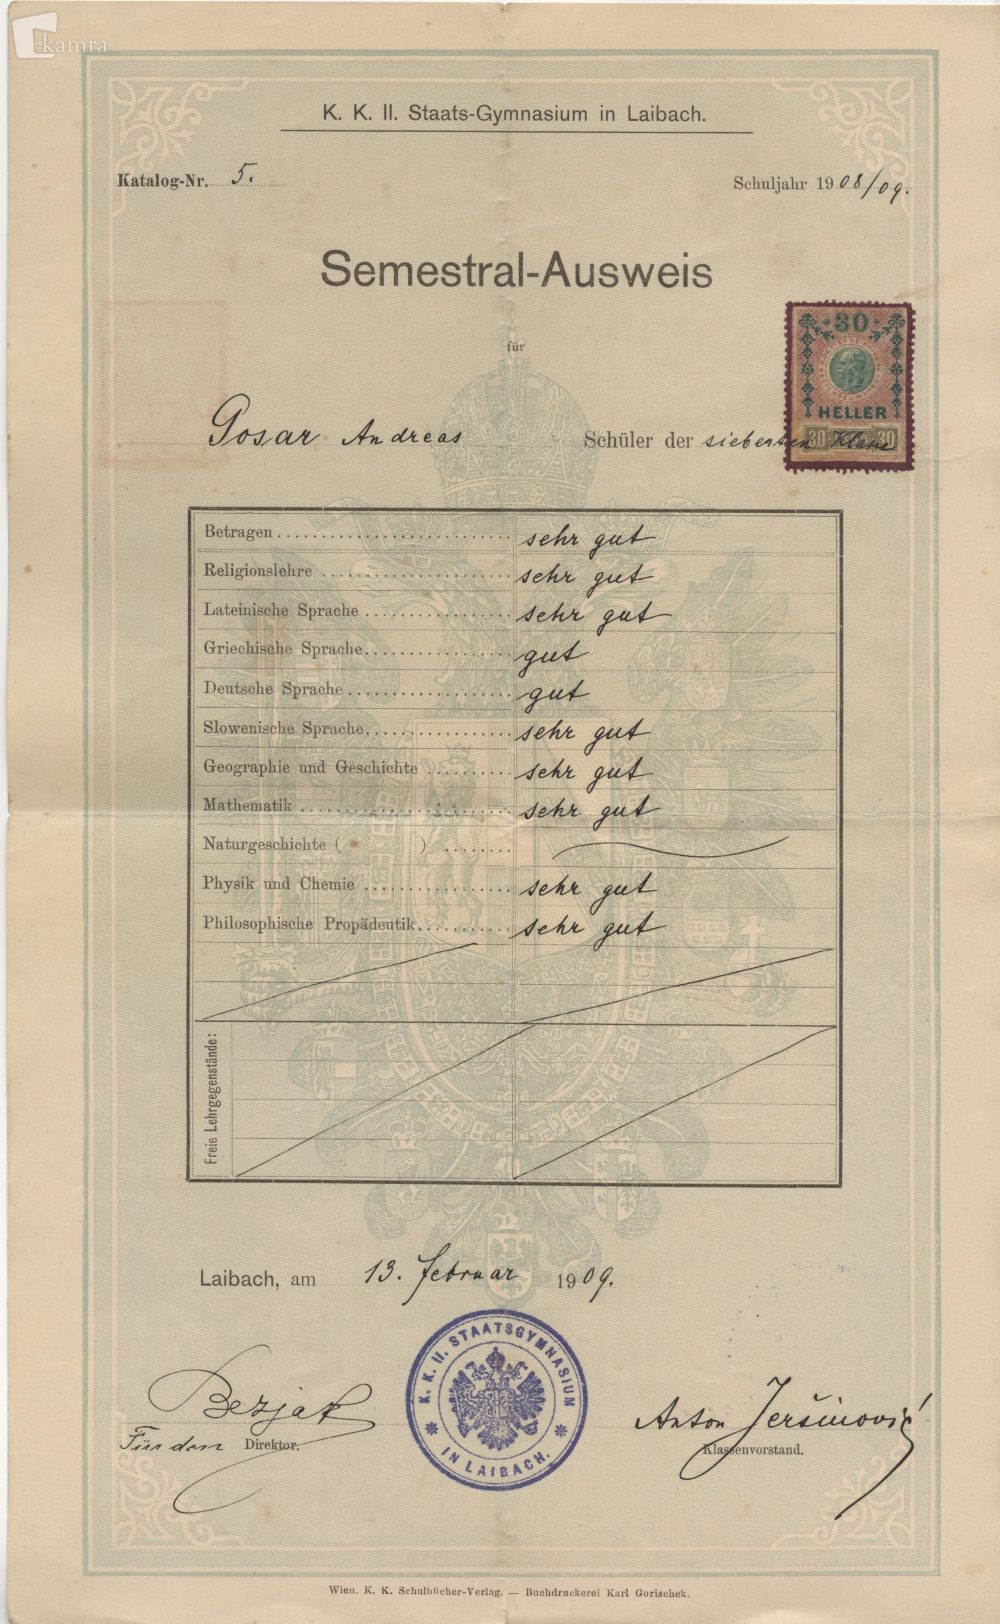 kamra
K. K. II. Staats-Gymnasium in Laibach.
Katalog-Nr. 5.
Schuljahr 1908/09.
Semestral-Ausweis
für
30
HELLER
30 30
Gosar Andreas Schüler der siebenten Klasse
Betragen sehr gut
Religionslehre sehr gut
Lateinische Sprache sehr gut
Griechische Sprache gut
Deutsche Sprache gut
Slowenische Sprache sehr gut
Geographie und Geschichte sehr gut
Mathematik sehr gut
Naturgeschichte ( )
Physik und Chemie sehr gut
Philosophische Propädeutik sehr gut
Freie Lehrgegenstände:
Laibach, am 13. Februar 1909.
K. K. II. STAATSGYMNASIUM
IN LAIBACH.
Bezjak
Für den Direktor.
Anton Jeršinović
Klassenvorstand.
Wien. K. K. Schulbücher-Verlag. — Buchdruckerei Karl Gorischek.